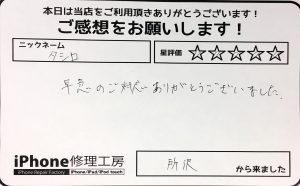 本日は当店をご利用頂きありがとうございます!
ご感想をお願いします!
ニックネーム
タシロ
星評価 ☆☆☆☆☆
早急のご対応ありがとうございました。
iPhone修理工房
iPhone Repair Factory iPhone/iPad/iPod touch
所沢 から来ました